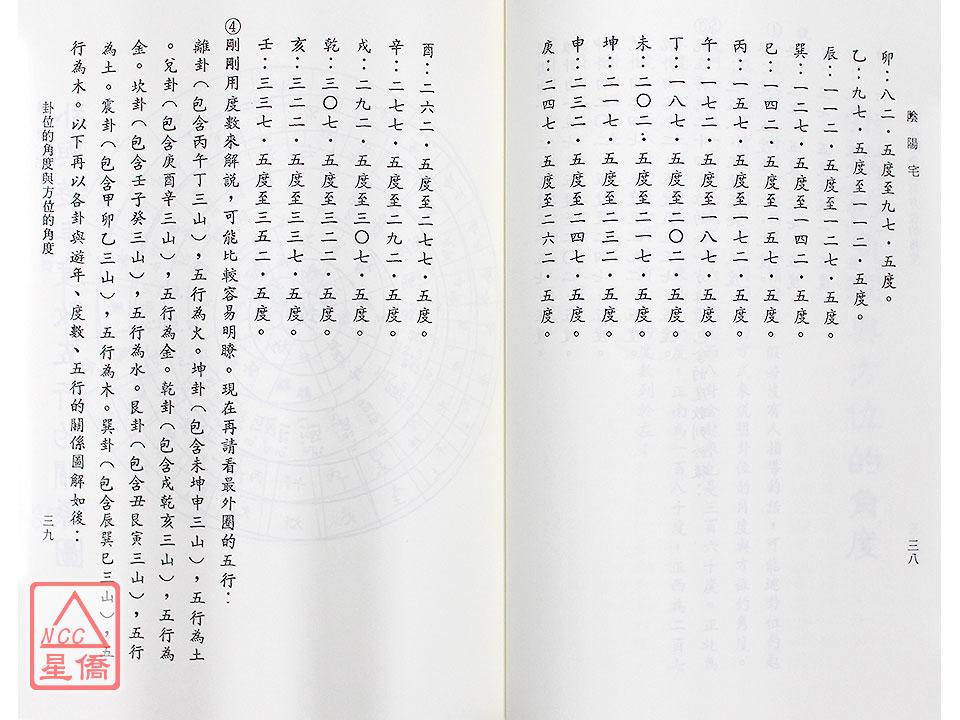 陰陽宅
三八
卯：八二．五度至九七．五度。
乙：九七．五度至一一二．五度。
辰：一一二．五度至一二七．五度。
巽：一二七．五度至一四二．五度。
巳：一四二．五度至一五七．五度。
丙：一五七．五度至一七二．五度。
午：一七二．五度至一八七．五度。
丁：一八七．五度至二〇二．五度。
未：二〇二：五度至二一七．五度。
坤：二一七．五度至二三二．五度。
申：二三二．五度至二四七．五度。
庚：二四七．五度至二六二．五度。
酉：二六二．五度至二七七．五度。
辛：二七七．五度至二九二．五度。
戌：二九二．五度至三〇七．五度。
乾：三〇七．五度至三二二．五度。
亥：三二二．五度至三三七．五度。
壬：三三七．五度至三五二．五度。
④剛剛用度數來解說，可能比較容易明瞭。現在再請看最外圈的五行：
離卦（包含丙午丁三山），五行為火。坤卦（包含未坤申三山），五行為土
。兌卦（包含庚酉辛三山），五行為金。乾卦（包含戌乾亥三山），五行為
金。坎卦（包含壬子癸三山），五行為水。艮卦（包含丑艮寅三山），五行
為土。震卦（包含甲卯乙三山），五行為木。巽卦（包含辰巽巳三山），五
行為木。以下再以各卦與遊年、度數、五行的關係圖解如後：
卦位的角度與方位的角度
三九
NCC
星僑